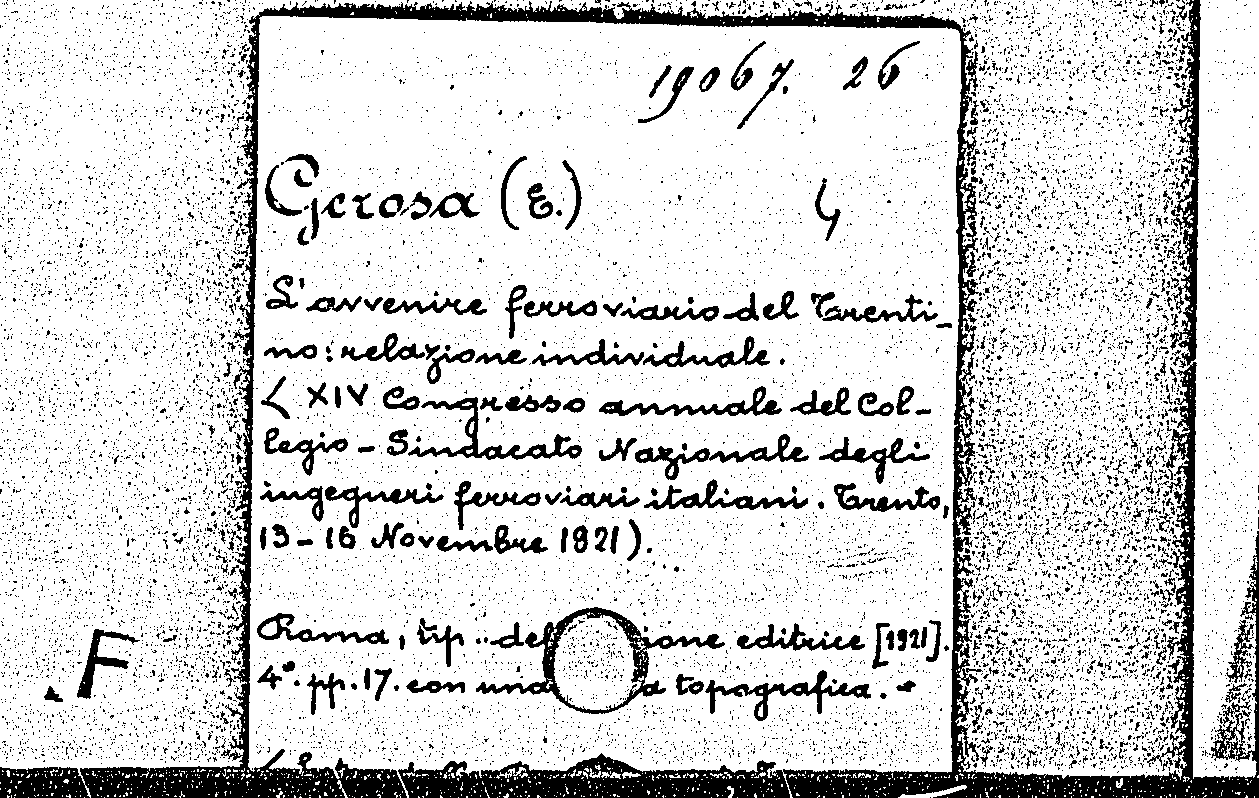 19067. 26
Gerosa (E.)
L'avvenire ferroviario del Trenti-
no: relazione individuale.
( XIV Congresso annuale del Col-
legio - Sindacato Nazionale degli
ingegneri ferroviari italiani. Trento,
13-16 Novembre 1921).
Roma, tip. del ione editrice [1921].
4°. pp. 17. con una a topografica. -
F